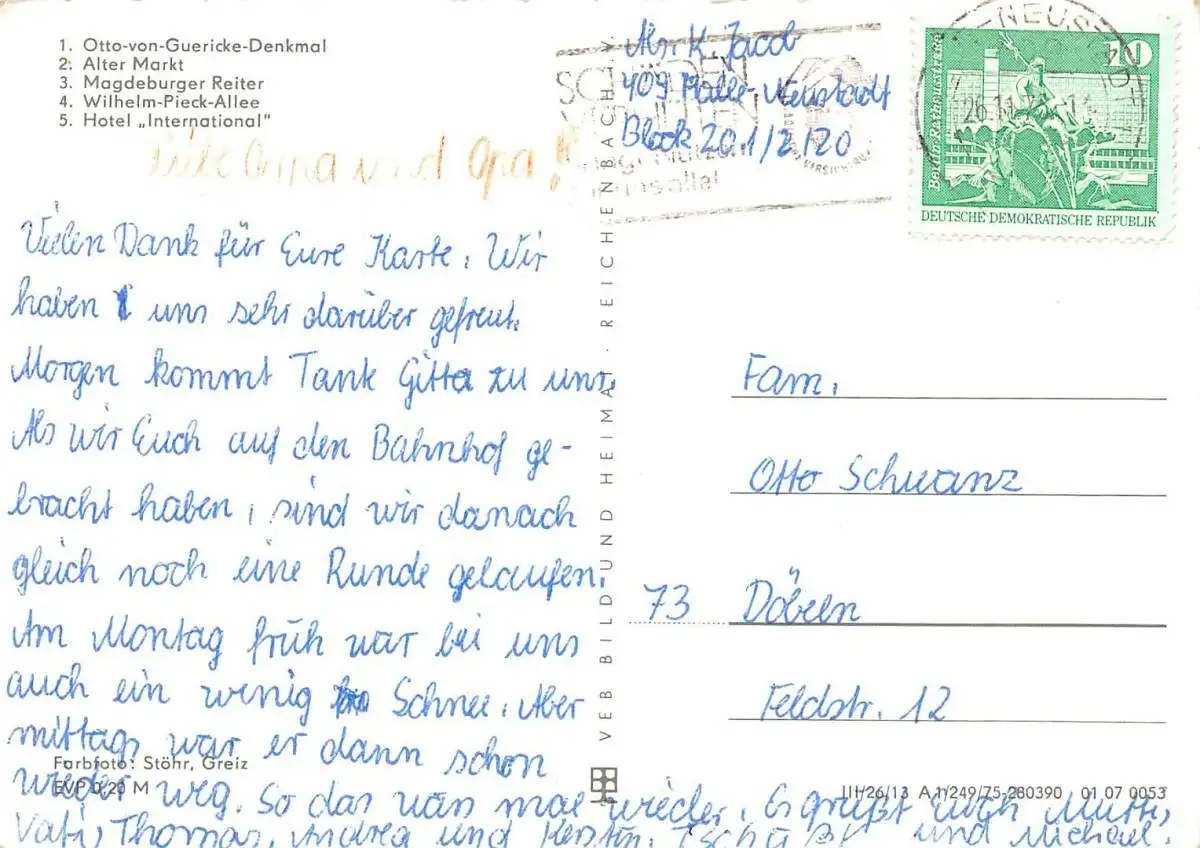 1. Otto-von-Guericke-Denkmal
2. Alter Markt
3. Magdeburger Reiter
4. Wilhelm-Pieck-Allee
5. Hotel „International"
Oma und Opa!
Vielen Dank für Eure Karte. Wir
haben uns sehr darüber gefreut.
Morgen kommt Tank Gitta zu uns.
Als wir Euch auf den Bahnhof ge-
bracht haben, sind wir danach
gleich noch eine Runde gelaufen.
Am Montag früh war bei uns
auch ein wenig Schnee. Aber
mittags war er dann schon
wieder weg. So das wärs mal wieder. Es grüßt Euch Mutti,
Vati, Thomas, Andrea und Kerstin. Tschüß! und Michael.
Farbfoto: Stöhr, Greiz
EVP 0,20 M
VEB BILD UND HEIMAT · REICHENBACH I. V.
Abs. K. Jacob
409 Halle-Neustadt
Block 201/2/20
NEUSTADT
Berlin Rathausstraße
10
DEUTSCHE DEMOKRATISCHE REPUBLIK
Fam.
Otto Schwanz
73 Döbeln
Feldstr. 12
III/26/13 A 1/249/75-280390 01 07 0053